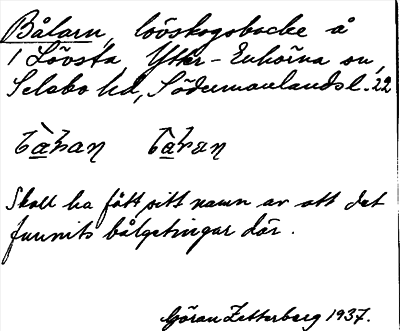 Bålarn, lövskogsbacke å
1 Lövsta, Ytter-Enhörna sn,
Selebo hd, Södermanlandsl. 22
bå̀ɫaɳ
Skall ha fått sitt namn av att det
funnits bålgetingar där.
Göran Zetterberg 1937.